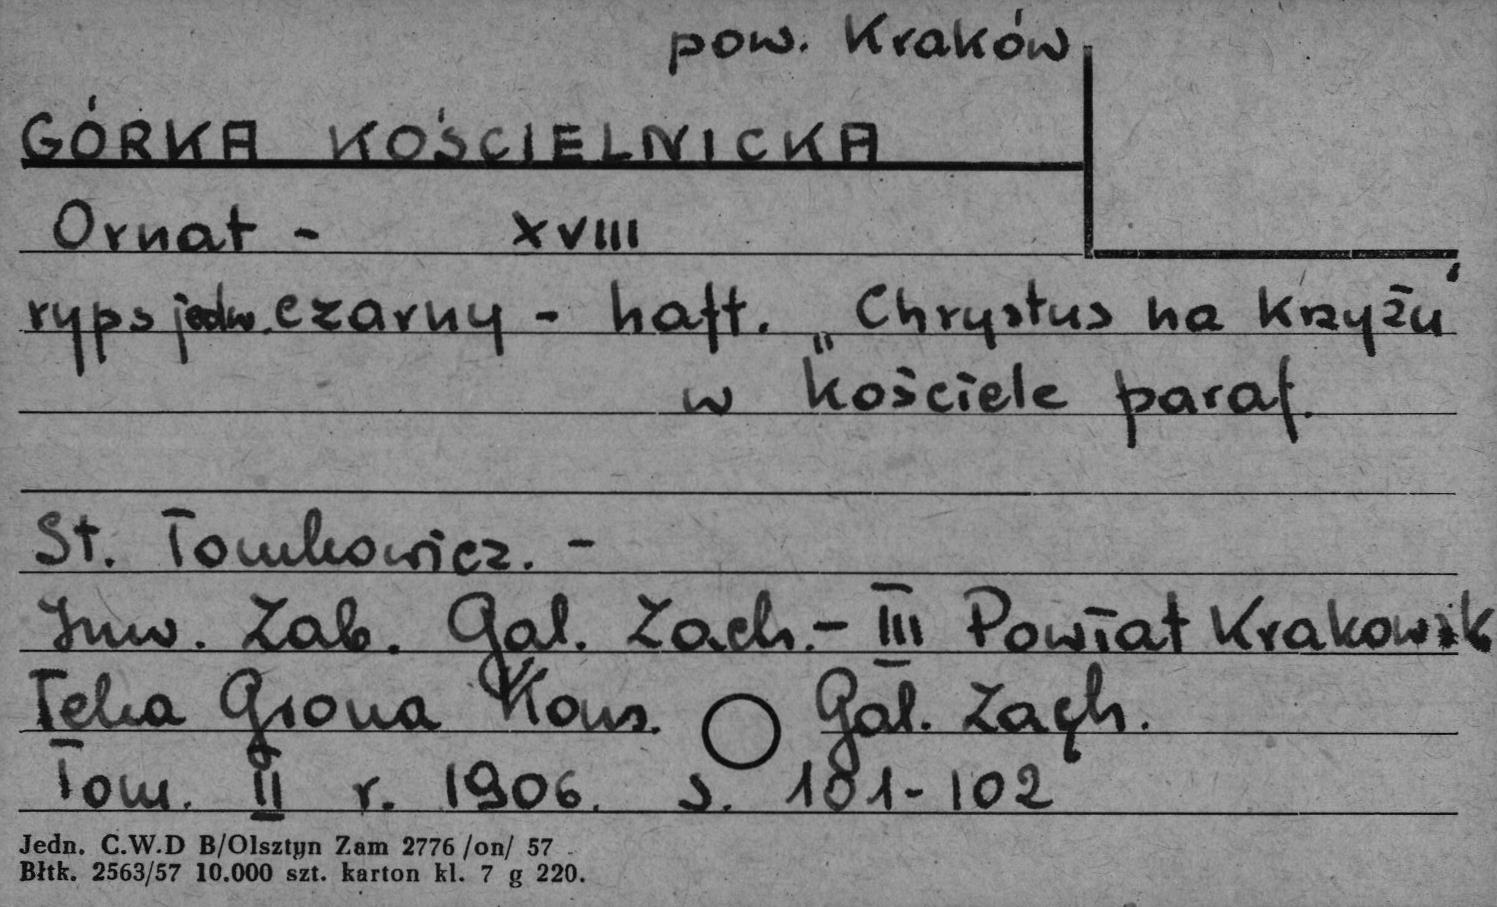 pow. Kraków
GÓRKA KOŚCIELNICKA
Ornat - XVIII
ryps jedw. czarny - haft. „Chrystus na krzyżu"
w kościele paraf.
St. Tomkowicz. -
Inw. Zab. Gal. Zach. - III Powiat Krakowsk
Teka Grona Kons. Gal. Zach.
Tom. II r. 1906. s. 101-102
Jedn. C.W.D B/Olsztyn Zam 2776 /on/ 57
Błtk. 2563/57 10.000 szt. karton kl. 7 g 220.